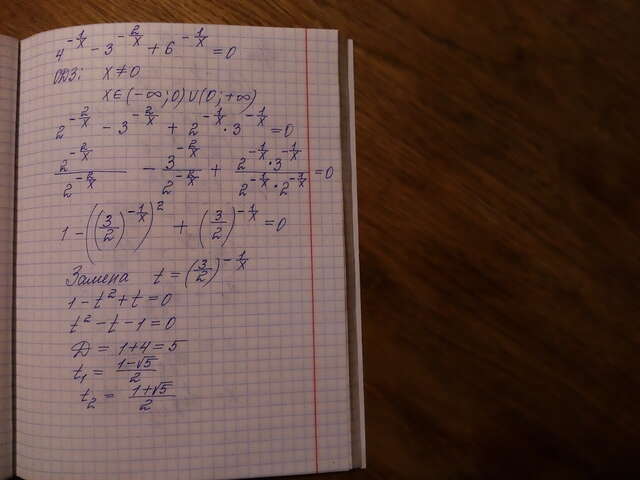 4^{-1/x} - 3^{-2/x} + 6^{-1/x} = 0
ОДЗ: x ≠ 0
x ∈ (-∞; 0) ∪ (0; +∞)
2^{-2/x} - 3^{-2/x} + 2^{-1/x} · 3^{-1/x} = 0
2^{-2/x} / 2^{-2/x} - 3^{-2/x} / 2^{-2/x} + (2^{-1/x} · 3^{-1/x}) / (2^{-1/x} · 2^{-1/x}) = 0
1 - ((3/2)^{-1/x})^2 + (3/2)^{-1/x} = 0
Замена t = (3/2)^{-1/x}
1 - t^2 + t = 0
t^2 - t - 1 = 0
Д = 1 + 4 = 5
t_1 = (1-√5)/2
t_2 = (1+√5)/2